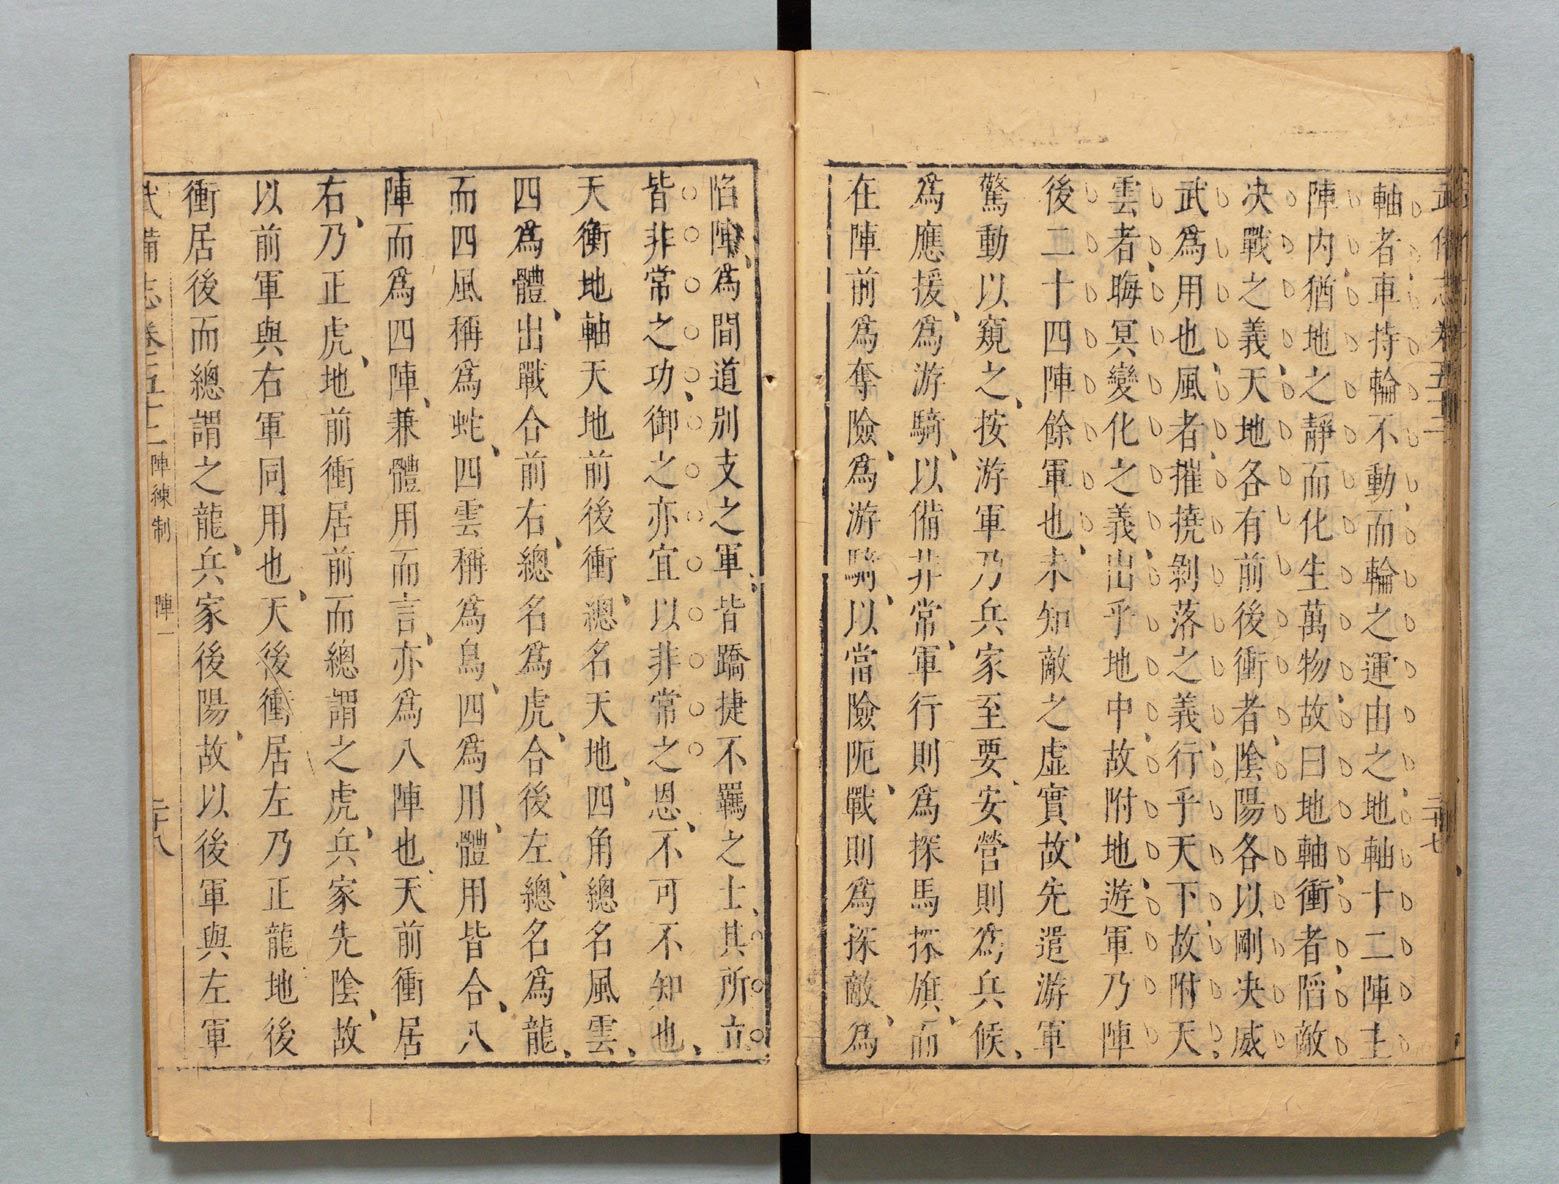 武備志卷五十二
二十七
軸者車持輪不動而輪之運由之地軸十二陣主
陣内猶地之靜而化生萬物故曰地軸衝者陷敵
决戰之義天地各有前後衝者陰陽各以剛决威
武爲用也風者摧撓剝落之義行乎天下故附天
雲者晦冥變化之義出乎地中故附地遊軍乃陣
後二十四陣餘軍也未知敵之虛實故先遣游軍
驚動以窺之按游軍乃兵家至要安營則爲兵候
爲應援爲游騎以備非常軍行則爲探馬探旗而
在陣前爲奪險爲游騎以當險阨戰則爲探敵爲
陷陣爲間道别支之軍皆蹻捷不羈之士其所立
皆非常之功御之亦宜以非常之恩不可不知也
天衡地軸天地前後衝總名天地四角總名風雲
四爲體出戰合前右總名爲虎合後左總名爲龍
而四風稱爲蛇四雲稱爲鳥四爲用體用皆合八
陣而爲四陣兼體用而言亦爲八陣也天前衝居
右乃正虎地前衝居前而總謂之虎兵家先陰故
以前軍與右軍同用也天後衝居左乃正龍地後
衝居後而總謂之龍兵家後陽故以後軍與左軍
武備志卷五十二 陣練制 陣一 二十八